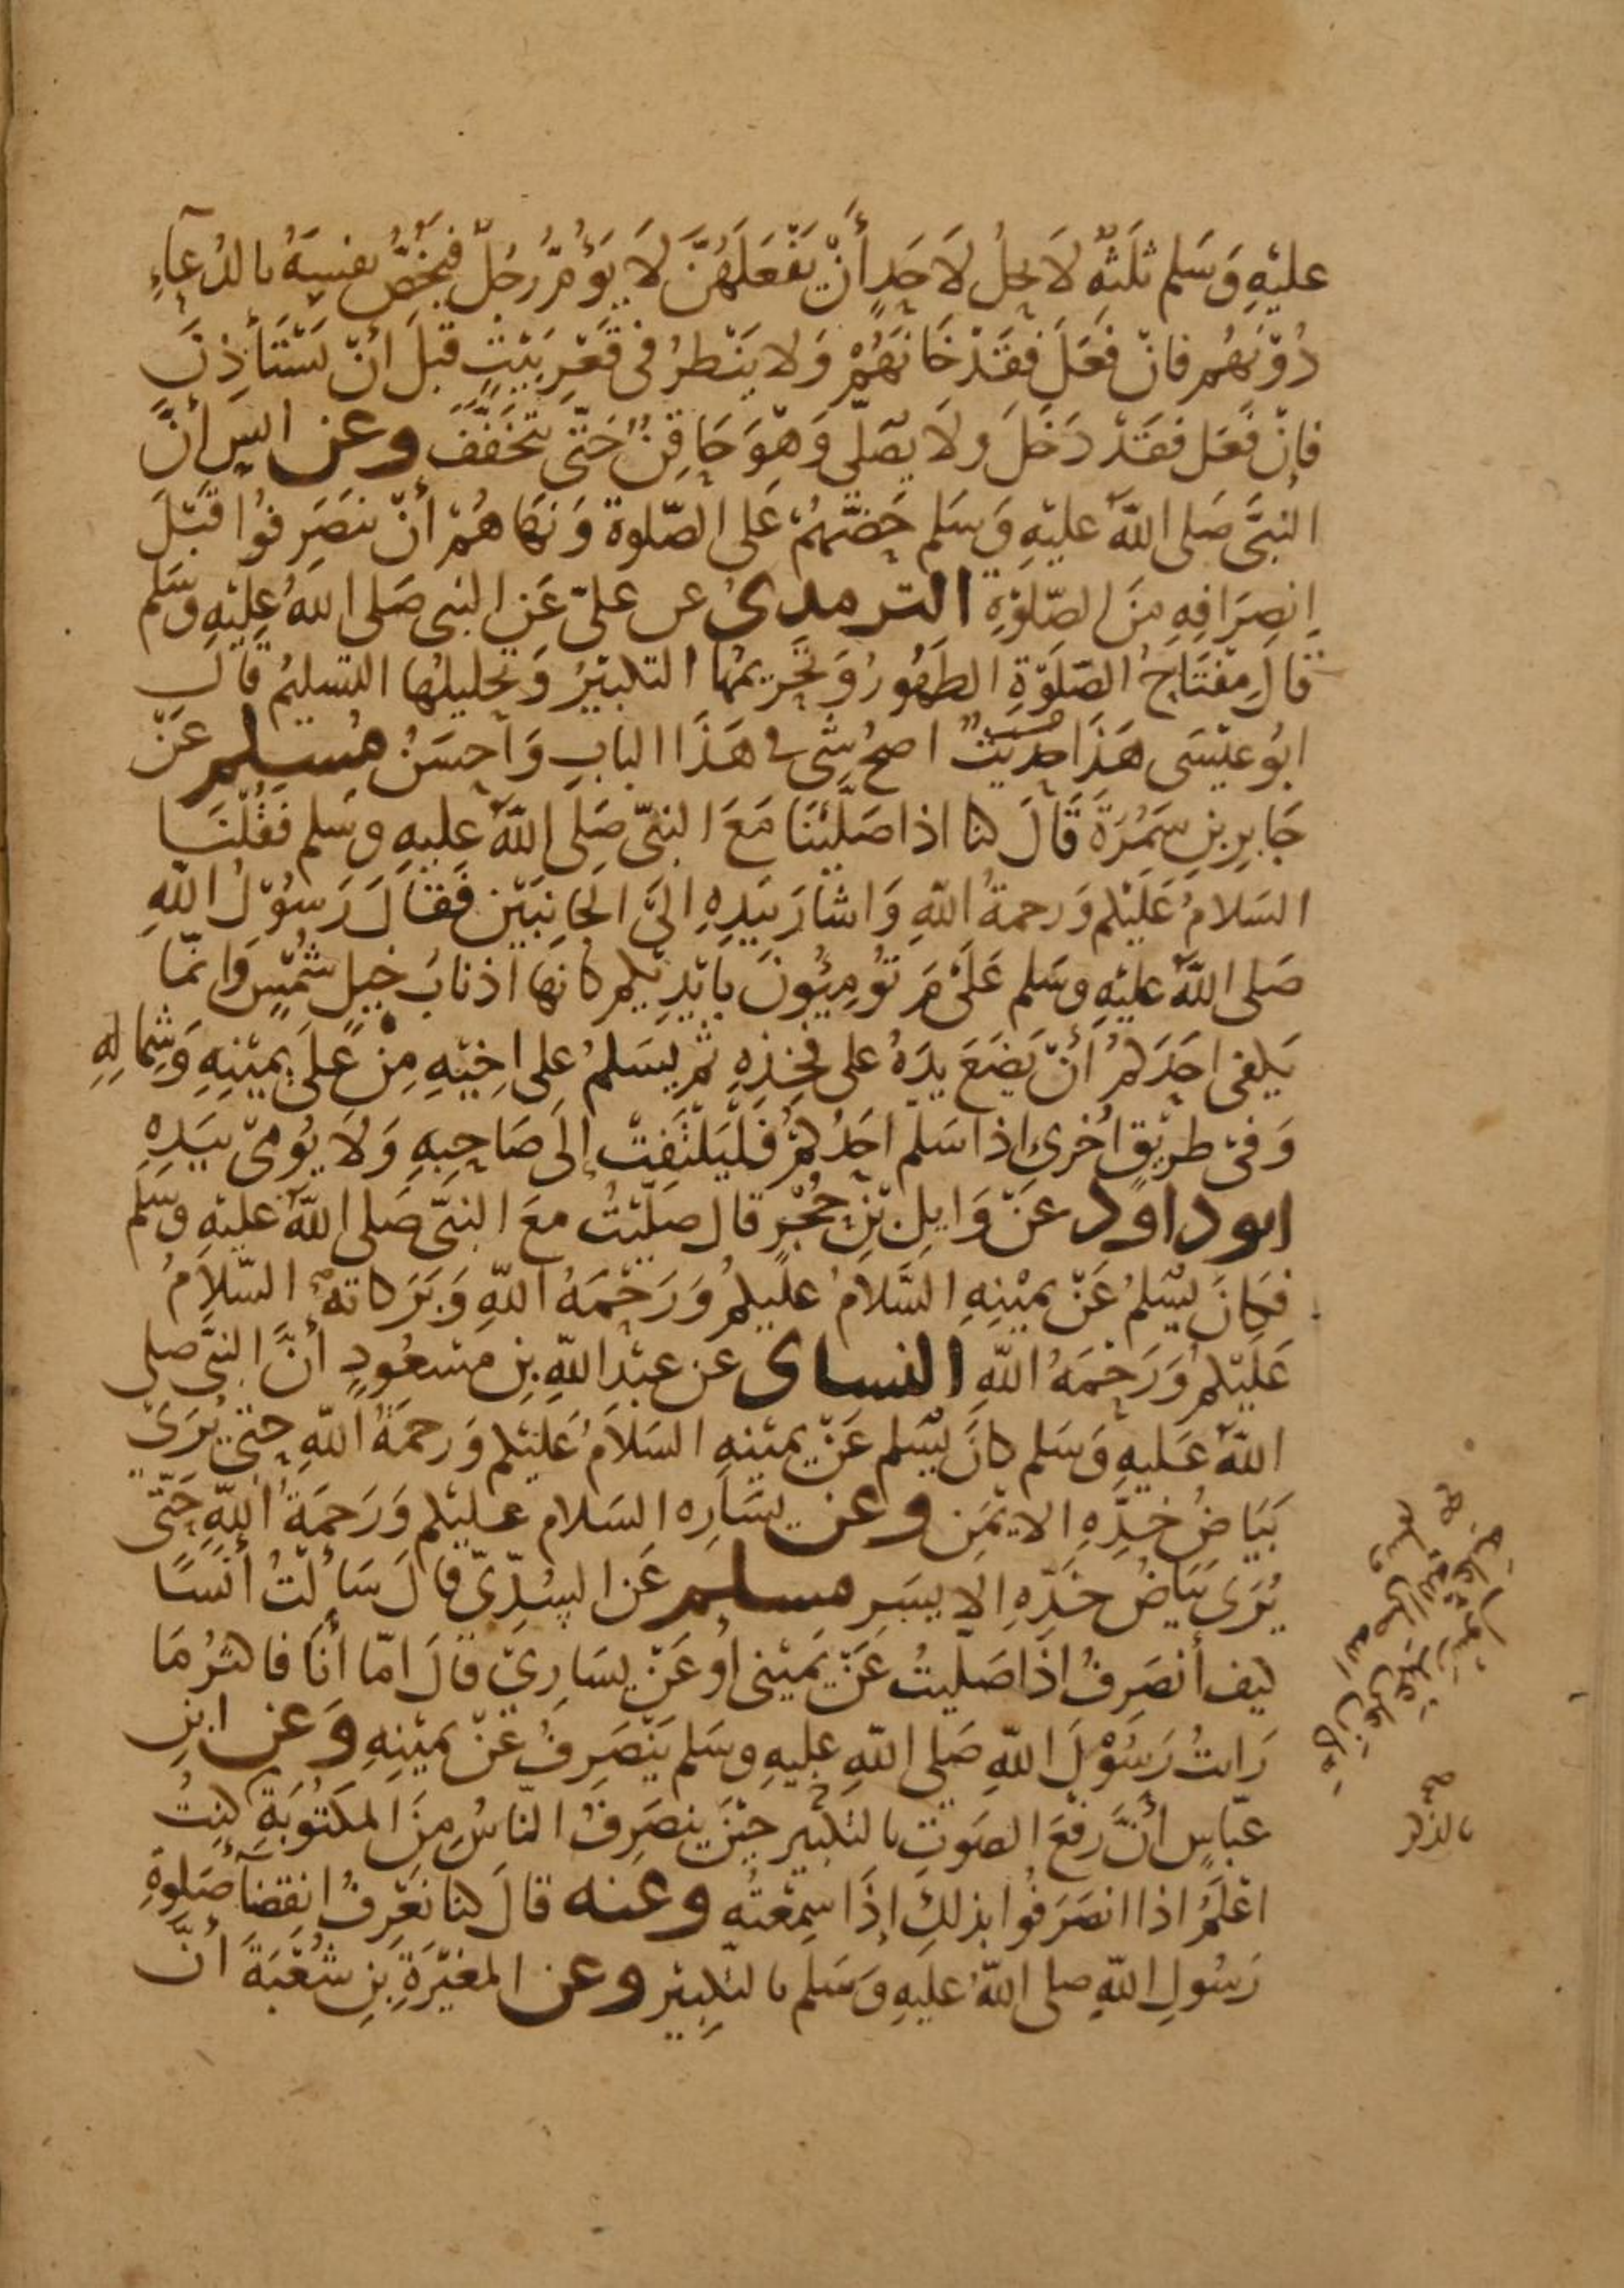 عليْهِ وَسَلم ثلَثةٌ لاَ يحلُ لاَحَدٍ أَنْ يَفْعَلَهُنَّ لاَ يَؤُمُّ رجُلٌ فيَخُصُّ نفسَهُ بالدُعآءِ
دُوْنهُم فانْ فعَلَ فقَدْ خَانَهُمْ وَلا يَنْظرُ في قَعْرِ بَيْتٍ قبلَ انْ يَسْتَأذِنَ
فإنْ فعَل فقَدْ دَخَلَ ولاَ يصَلّي وَهْوَ حَاقِنٌ حَتّى يَتَخَفَّفَ وعن انسٍ أنَّ
النبيَّ صَلى اللهُ عليْهِ وَسَلم حَضَّهُمْ عَلى الصّلوة وَنَهَاهُمْ أنْ ينصَرِفوُا قَبْلَ
اِنصِرَافِهِ مِنَ الصّلوْةِ الترمذيُ عن عليّ عَنِ النبي صَلى اللهُ عليْهِ وسَلم
قالَ مِفتَاحُ الصّلَوْةِ الطَهُورُ وَتحْرِيمُهَا التكبيْرُ وَتحليلُهَا التسليمُ قال
ابُو عيْسَى هَذَا حديثٌ اصحُ شيٍ في هَذَا البابِ وَاحسَنُ مُسلم عَنْ
جَابِرِ بنِ سَمُرَةَ قَالَ كنا اذا صَلَّيْنَا مَعَ النبيّ صَلى اللهُ عليهِ وسَلم فَقُلْنَا
السَلامُ عَلَيْكم وَرحمةُ اللهِ وَاشارَ بيَدِهِ الىَ الجانِبَيْن فَقالَ رَسوُلُ اللهِ
صَلى اللهُ عليْهِ وسَلم عَلَىْ مَ تُوْمِيُونَ بأيْدِيْكم كانها اذنابُ خيلٍ شُمْسٍ وَانمّا
يَكفي احَدَكمُ أنْ يَضَعَ يدَهُ على فخِذِهِ ثمّ يسَلمُ على اخِيْهِ مِنْ عَلىَ يمِيْنِهِ وَشِمالِهِ
وَفيْ طريْقٍ اُخرى اذا سَلّم احَدُكمْ فَلْيَلْتَفِتْ إلَى صَاحِبِهِ وَلاَ يُومىْ بيَدِهِ
ابو داود عنْ وَايِلِ بْنِ حُجْرٍ قال صَليْتُ معَ النبيّ صَلى اللهُ عليْهِ وسَلم
فكانَ يُسَلمُ عَنْ يمْيِنِهِ السَّلاَمُ عليكمْ وَرَحْمَةُ اللهِ وَبَرَكاتهُ السّلاَمُ
عَلَيْكمْ وَرَحْمَةُ اللهِ النساى عن عبْدِ اللهِ بنِ مَسْعُودٍ أنَّ النبيَّ صلى
اللهُ عَليهِ وَسَلم كانَ يُسَلم عَنْ يمِيْنِهِ السَلاَمُ عَلَيْكم وَرحمَةُ اللهِ حتى يُرَى
بَيَاضُ خدِّهِ الايْمَنِ وعن يسَارِه السَلام عليْكم وَرَحمَةُ اللهِ حَتّى
يُرَى بَيَاضُ خَدِّهِ الايسَرِ مسلم عَن السُدِّيّ قالَ سَألتُ أنَسًا
كيف أنصَرِفُ اذَا صَلّيتُ عَنْ يَمِيْنى اوْ عَنْ يسَارِيْ قالَ امّا أنَا فاكثرُ مَا
رَايتُ رَسُوْلَ اللهِ صَلى اللهِ عليهِ وسَلم يَنْصَرِفُ عَنْ يمِيْنِهِ وَعن ابنِ
عبّاسٍ أنَّ رَفْعَ الصَوتِ بالتكبير حيْنَ ينصَرِفُ الناسُ مِنَ المكتُوبَةِ كنتُ
اعْلَمُ اذا انصَرَفوُا بذلكَ إذَا سِمعْتُه وعنه قالَ كنا نَعْرِفُ انقِضَآءَ صَلوةِ
رَسُولِ اللهِ صلى اللهُ عليهِ وَسَلم بالتكبِيْر وعن المغيْرَةِ بنِ شُعْبَةَ أنَّ
بالذكر
كان على عهد رسول الله صلى الله عليه وسلم